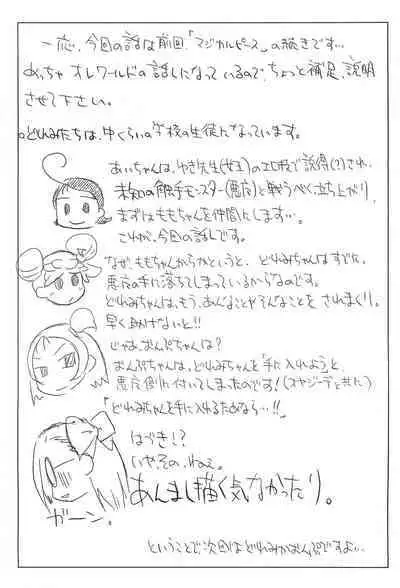 一応、今回の話は前回、「マジカルピース」の続きです…
めっちゃ オレワールドの話しになって いるので、ちょっと補足、説明
させて下さい。
○どれみたちは、中くらいの学校の生徒になっています。
あいちゃんは、ゆき先生(女王)のエロ技で説得(?)され、
未知の触手モンスター(悪度)と戦うべく立ち上がり、
まずはももちゃんを仲間にします…。
これが、今回の話しです。
なぜ、ももちゃんからかというと、どれみちゃんはすでに、
悪度の手に落ちてしまっているからなのです。
どれみちゃんは、もう、あんなことやそんなことを されまくり。
早く助けないと!!
じゃあ、おんぷちゃんは?
おんぷちゃんは、どれみちゃんを「手に入れよう」と、
悪度側に付いてしまったのです!(オヤジーデと共に)
「どれみちゃんを手に入れるためなら…!!」
はづき!?
いやその、ねぇ。
あんまし描く気なかったり。
ガーン。
ということで、次回はどれみかおんぷですよ…